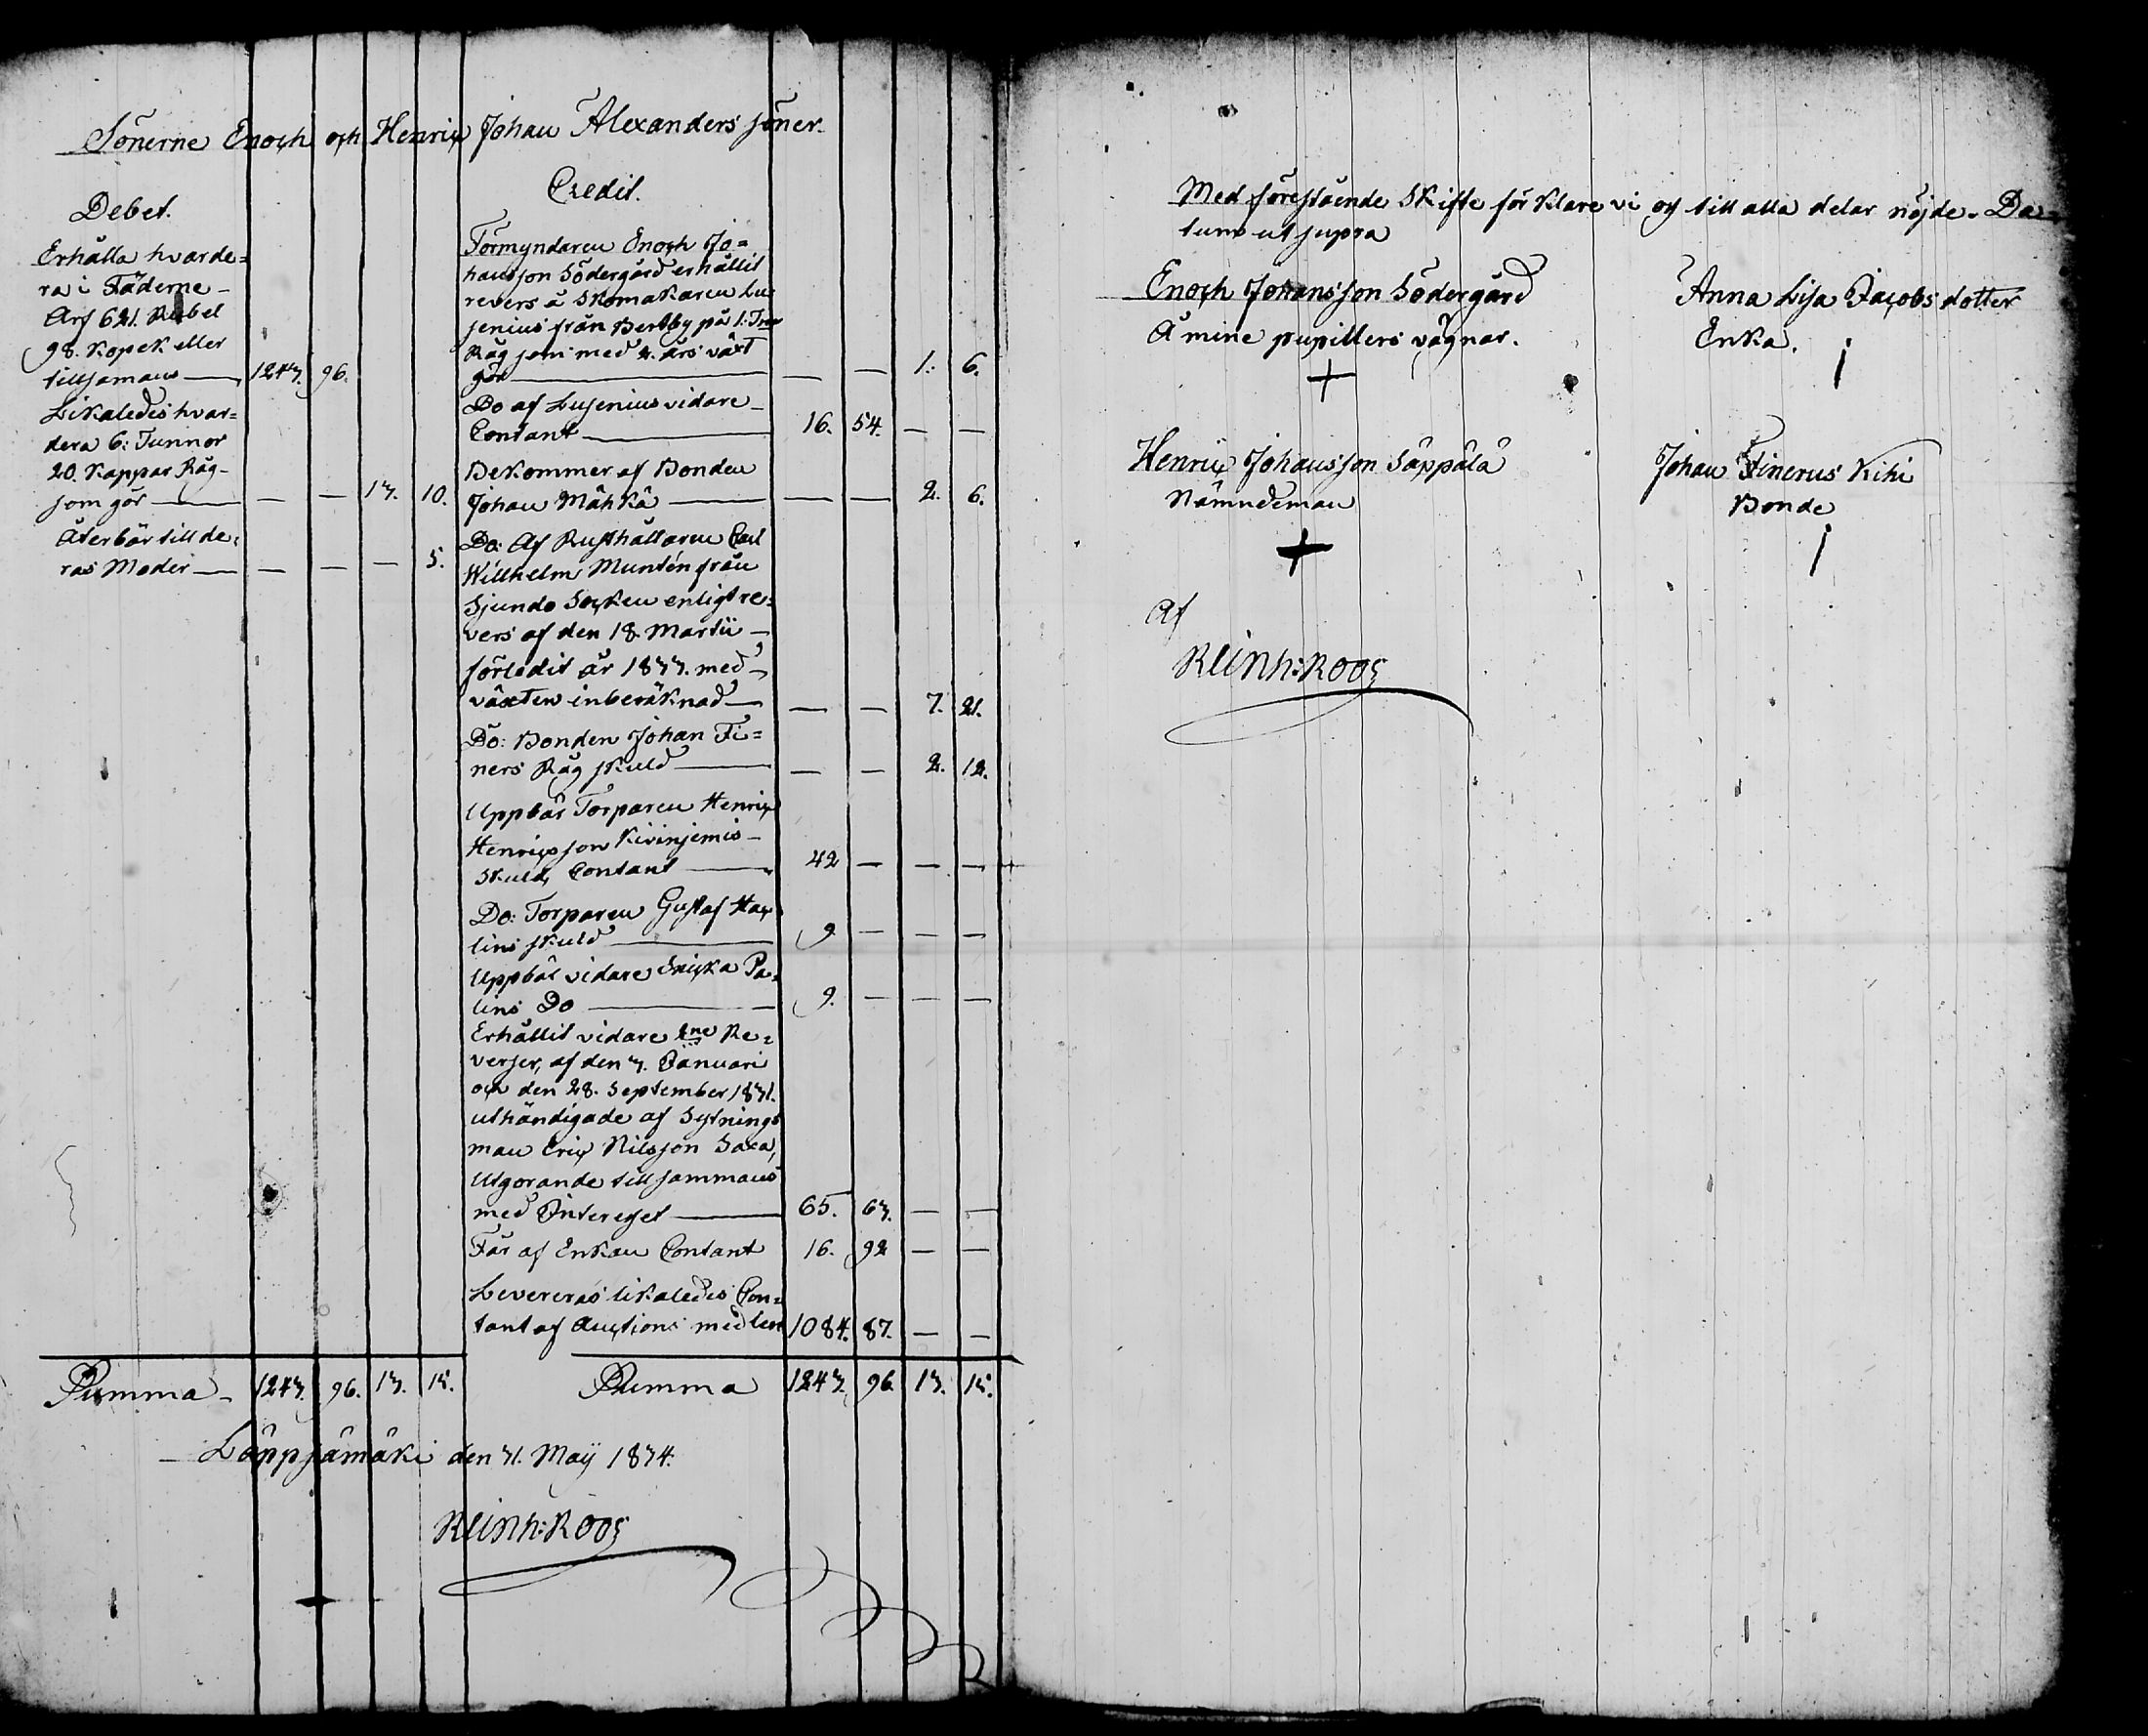 Sönerne Enoch och Henric Johan Alexanders söner.
Debet.
Erhålla hvarde=
ra i Fäderne
Arf 621. Rubel
98. Kopek eller
tillsamans — 1243. 96.
Likaledes hvar=
dera 6: Tunnor
20. Kappar Råg
som gör — — — 13. 10.
Återbär till de=
ras Moder — — — — 5.
Summa 1243. 96. 13. 15.
Credit.
Förmyndaren Enoch Jo=
hansson Södergård erhållit
revers å Skomakaren Lu
senius från Bertby på 1: Tnn
Råg som med 2. års växt
gör — — — 1. 6.
Do af Lusenius vidare
Contant — 16. 54. — —
Bekommer af Bonden
Johan Mähkä — — — 2. 6.
Do: Af Rusthållaren Carl
Willhelm Muntén från
Sjundo Socken enligt re=
vers af den 18. Martii
förledit år 1833. med
växten inberäknad — — — 7. 21.
Do: Bonden Johan Fi=
ners Råg skuld — — — 2. 12.
Uppbär Torparen Henric
Henricsson Kivinjemis
Skuld, Contant — 42 — — —
Do: Torparen Gustaf Hag
lins skuld — 9. — — —
Uppbär vidare Pa=
lins Do — 9. — — —
Erhållit vidare 2ne Re=
verser, af den 3. Januari
och den 28. September 1831.
uthändigade af Sytnings
man Eric Nilsson Saxa,
Utgorande till sammans
med Intresset — 65. 63. — —
Får af Enkan Contant 16. 92 — —
Levereras likaledes Con=
tant af Auctions medlen 1084. 87. — —
Summa 1243. 96. 13. 15.
Löppjämäki den 31. Maij 1834.
Reinh: Roos
Med förestående Skifte förklare vi oss till alla delar nöjde. Da=
tum ut supra
Enoch Johansson Södergård
Å mine pupillers vägnar.
+
Anna Lisa Jacobs dotter
Enka.
Henric Johansson Säppälä
Nämndeman
+
Johan Finerus Kihi
Bonde
Af
Reinh: Roos